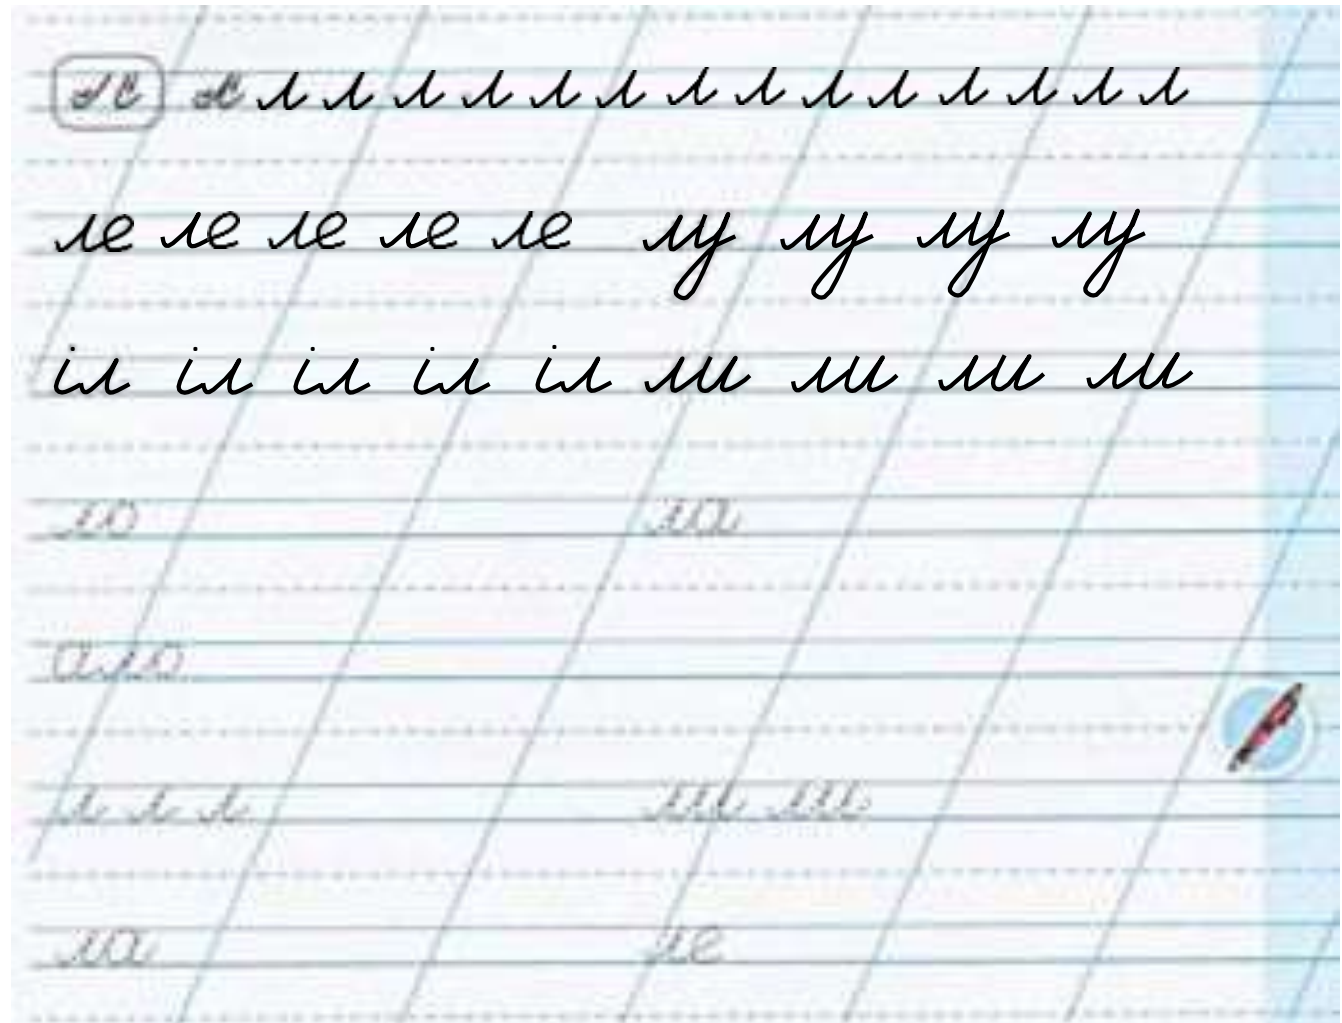 л л л л л л л л л л л л л л л л
ле ле ле ле ле лу лу лу лу
іл іл іл іл іл ли ли ли ли
ло ла
ало
л л л ли ли
ла ле